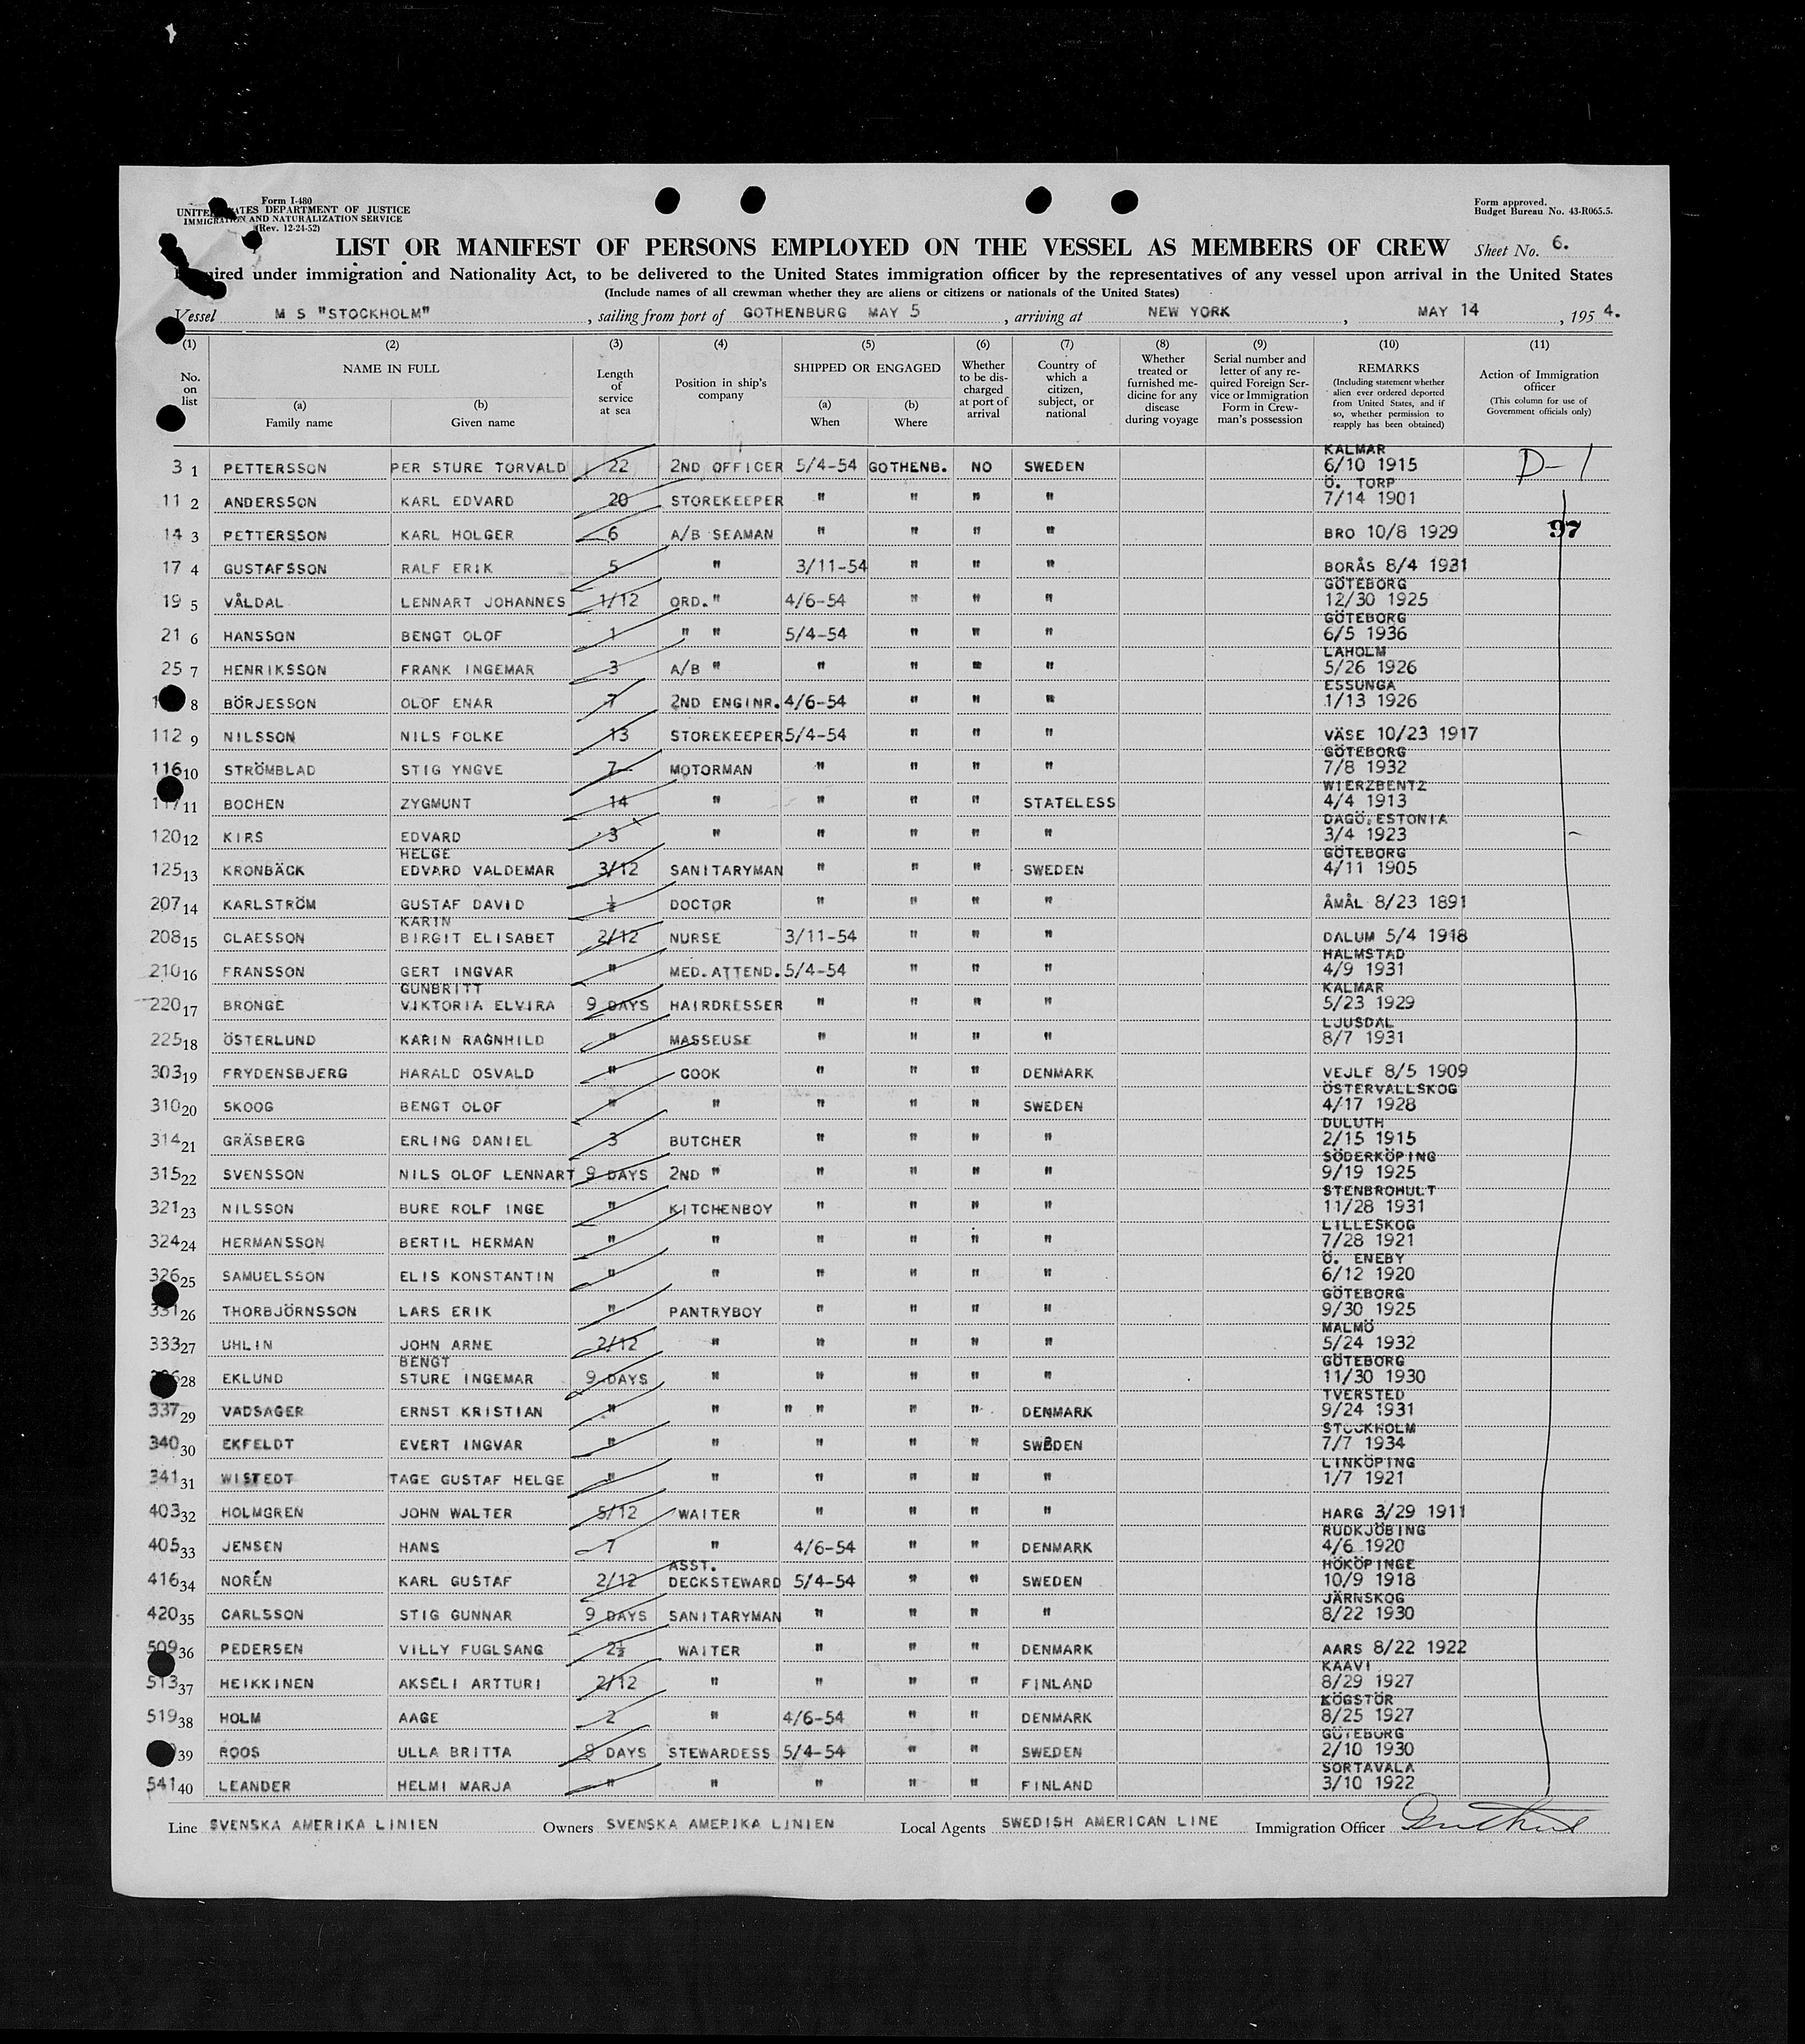 Form I-480
UNITED STATES DEPARTMENT OF JUSTICE
IMMIGRATION AND NATURALIZATION SERVICE
(Rev. 12-24-52)
Form approved.
Budget Bureau No. 43-R065.5.
LIST OR MANIFEST OF PERSONS EMPLOYED ON THE VESSEL AS MEMBERS OF CREW Sheet No. 6.
Required under immigration and Nationality Act, to be delivered to the United States immigration officer by the representatives of any vessel upon arrival in the United States
(Include names of all crewman whether they are aliens or citizens or nationals of the United States)
Vessel M S "STOCKHOLM", sailing from port of GOTHENBURG MAY 5, arriving at NEW YORK, MAY 14, 1954.
(1) (2) (3) (4) (5) (6) (7) (8) (9) (10) (11)
No. on list
NAME IN FULL
(a) Family name
(b) Given name
Length of service at sea
Position in ship's company
SHIPPED OR ENGAGED
(a) When
(b) Where
Whether to be discharged at port of arrival
Country of which a citizen, subject, or national
Whether treated or furnished medicine for any disease during voyage
Serial number and letter of any required Foreign Service or Immigration Form in Crewman's possession
REMARKS
(Including statement whether alien ever ordered deported from United States, and if so, whether permission to reapply has been obtained)
Action of Immigration officer
(This column for use of Government officials only)
3 1 PETTERSSON PER STURE TORVALD 22 2ND OFFICER 5/4-54 GOTHENB. NO SWEDEN KALMAR 6/10 1915 D-1
11 2 ANDERSSON KARL EDVARD 20 STOREKEEPER " " " " Ö. TORP 7/14 1901
14 3 PETTERSSON KARL HOLGER 6 A/B SEAMAN " " " " BRO 10/8 1929 97
17 4 GUSTAFSSON RALF ERIK 5 " 3/11-54 " " " BORÅS 8/4 1931
19 5 VÅLDAL LENNART JOHANNES 1/12 ORD. " 4/6-54 " " " GÖTEBORG 12/30 1925
21 6 HANSSON BENGT OLOF 1 " " 5/4-54 " " " GÖTEBORG 6/5 1936
25 7 HENRIKSSON FRANK INGEMAR 3 A/B " " " " " LAHOLM 5/26 1926
8 BÖRJESSON OLOF ENAR 7 2ND ENGINR. 4/6-54 " " " ESSUNGA 1/13 1926
112 9 NILSSON NILS FOLKE 13 STOREKEEPER 5/4-54 " " " VÄSE 10/23 1917
116 10 STRÖMBLAD STIG YNGVE 7 MOTORMAN " " " " GÖTEBORG 7/8 1932
117 11 BOCHEN ZYGMUNT 14 " " " " STATELESS WIERZBENTZ 4/4 1913
120 12 KIRS EDVARD 3 " " " " " DAGÖ, ESTONIA 3/4 1923
125 13 KRONBÄCK HELGE EDVARD VALDEMAR 3/12 SANITARYMAN " " " SWEDEN GÖTEBORG 4/11 1905
207 14 KARLSTRÖM GUSTAF DAVID ½ DOCTOR " " " " ÅMÅL 8/23 1891
208 15 CLAESSON KARIN BIRGIT ELISABET 2/12 NURSE 3/11-54 " " " DALUM 5/4 1918
210 16 FRANSSON GERT INGVAR " MED. ATTEND. 5/4-54 " " " HALMSTAD 4/9 1931
220 17 BRONGE GUNBRITT VIKTORIA ELVIRA 9 DAYS HAIRDRESSER " " " " KALMAR 5/23 1929
225 18 ÖSTERLUND KARIN RAGNHILD " MASSEUSE " " " " LJUSDAL 8/7 1931
303 19 FRYDENSBJERG HARALD OSVALD " COOK " " " DENMARK VEJLE 8/5 1909
310 20 SKOOG BENGT OLOF " " " " " SWEDEN ÖSTERVALLSKOG 4/17 1928
314 21 GRÄSBERG ERLING DANIEL 3 BUTCHER " " " " DULUTH 2/15 1915
315 22 SVENSSON NILS OLOF LENNART 9 DAYS 2ND " " " " " SÖDERKÖPING 9/19 1925
321 23 NILSSON BURE ROLF INGE " KITCHENBOY " " " " STENBROHULT 11/28 1931
324 24 HERMANSSON BERTIL HERMAN " " " " " " LILLESKOG 7/28 1921
326 25 SAMUELSSON ELIS KONSTANTIN " " " " " " Ö. ENEBY 6/12 1920
331 26 THORBJÖRNSSON LARS ERIK " PANTRYBOY " " " " GÖTEBORG 9/30 1925
333 27 UHLIN JOHN ARNE 2/12 " " " " " MALMÖ 5/24 1932
28 EKLUND BENGT STURE INGEMAR 9 DAYS " " " " " GÖTEBORG 11/30 1930
337 29 VADSAGER ERNST KRISTIAN " " " " " " DENMARK TVERSTED 9/24 1931
340 30 EKFELDT EVERT INGVAR " " " " " SWEDEN STOCKHOLM 7/7 1934
341 31 WISTEDT TAGE GUSTAF HELGE " " " " " " LINKÖPING 1/7 1921
403 32 HOLMGREN JOHN WALTER 5/12 WAITER " " " " HARG 3/29 1911
405 33 JENSEN HANS 7 " 4/6-54 " " DENMARK RUDKJÖBING 4/6 1920
416 34 NORÉN KARL GUSTAF 2/12 ASST. DECKSTEWARD 5/4-54 " " SWEDEN HÖKÖPINGE 10/9 1918
420 35 CARLSSON STIG GUNNAR 9 DAYS SANITARYMAN " " " " JÄRNSKOG 8/22 1930
509 36 PEDERSEN VILLY FUGLSANG 2½ WAITER " " " DENMARK AARS 8/22 1922
513 37 HEIKKINEN AKSELI ARTTURI 2/12 " " " " FINLAND KAAVI 8/29 1927
519 38 HOLM AAGE 2 " 4/6-54 " " DENMARK KÖGSTÖR 8/25 1927
39 ROOS ULLA BRITTA 9 DAYS STEWARDESS 5/4-54 " " SWEDEN GÖTEBORG 2/10 1930
541 40 LEANDER HELMI MARJA " " " " " FINLAND SORTAVALA 3/10 1922
Line SVENSKA AMERIKA LINIEN Owners SVENSKA AMERIKA LINIEN Local Agents SWEDISH AMERICAN LINE Immigration Officer